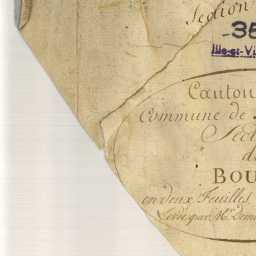 Section
35
Ille-et-Vi
Canton
Commune de
Sect
d
BOU
en deux Feuilles
Levée par Mr. Dem